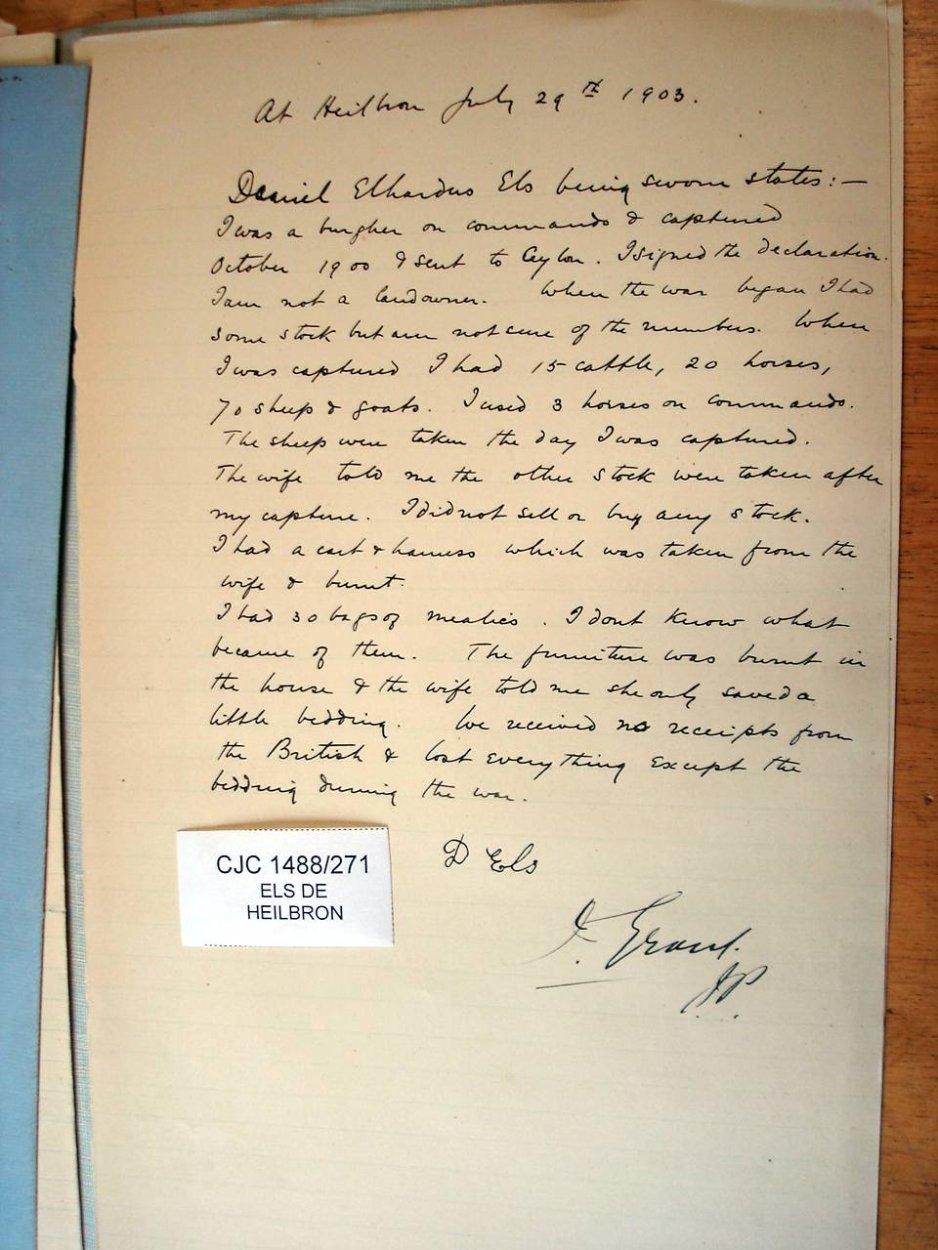 At Heilbron July 29th 1903.
Daniel Elhardus Els being sworn states:—
I was a burgher on commando & captured
October 1900 & sent to Ceylon. I signed the declaration.
I am not a landowner. When the war began I had
some stock but am not sure of the numbers. When
I was captured I had 15 cattle, 20 horses,
70 sheep & goats. I used 3 horses on commando.
The sheep were taken the day I was captured.
The wife told me the other stock were taken after
my capture. I did not sell or buy any stock.
I had a cart & harness which was taken from the
wife & burnt.
I had 30 bags of mealies. I dont know what
became of them. The furniture was burnt in
the house & the wife told me she only saved a
little bedding. We received no receipts from
the British & lost everything except the
bedding during the war.
D Els
Grant.
J.P.
CJC 1488/271
ELS DE
HEILBRON